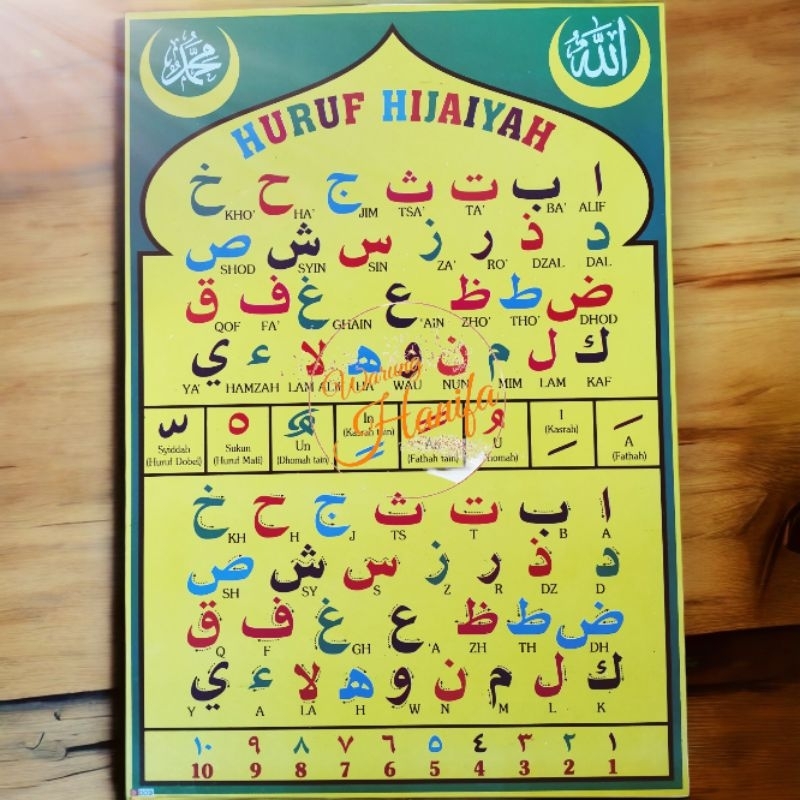 محمد
الله
HURUF HIJAIYAH
ا ب ت ث ج ح خ
ALIF BA' TA' TSA' JIM HA' KHO'
د ذ ر ز س ش ص
DAL DZAL RO' ZA' SIN SYIN SHOD
ض ط ظ ع غ ف ق
DHOD THO' ZHO' 'AIN GHAIN FA' QOF
ك ل م ن و ه لا ء ي
KAF LAM MIM NUN WAU HA' LAM ALIF HAMZAH YA'
A
(Fathah)
I
(Kasrah)
U
(Fathah tain)
In
(Kasrah tain)
Un
(Dhomah tain)
Sukun
(Huruf Mati)
Syiddah
(Huruf Dobel)
Warung
Hanifa
ا ب ت ث ج ح خ
A B T TS J H KH
د ذ ر ز س ش ص
D DZ R Z S SY SH
ض ط ظ ع غ ف ق
DH TH ZH 'A GH F Q
ك ل م ن و ه لا ء ي
K L M N W H LA A Y
١ ٢ ٣ ٤ ٥ ٦ ٧ ٨ ٩ ١٠
1 2 3 4 5 6 7 8 9 10